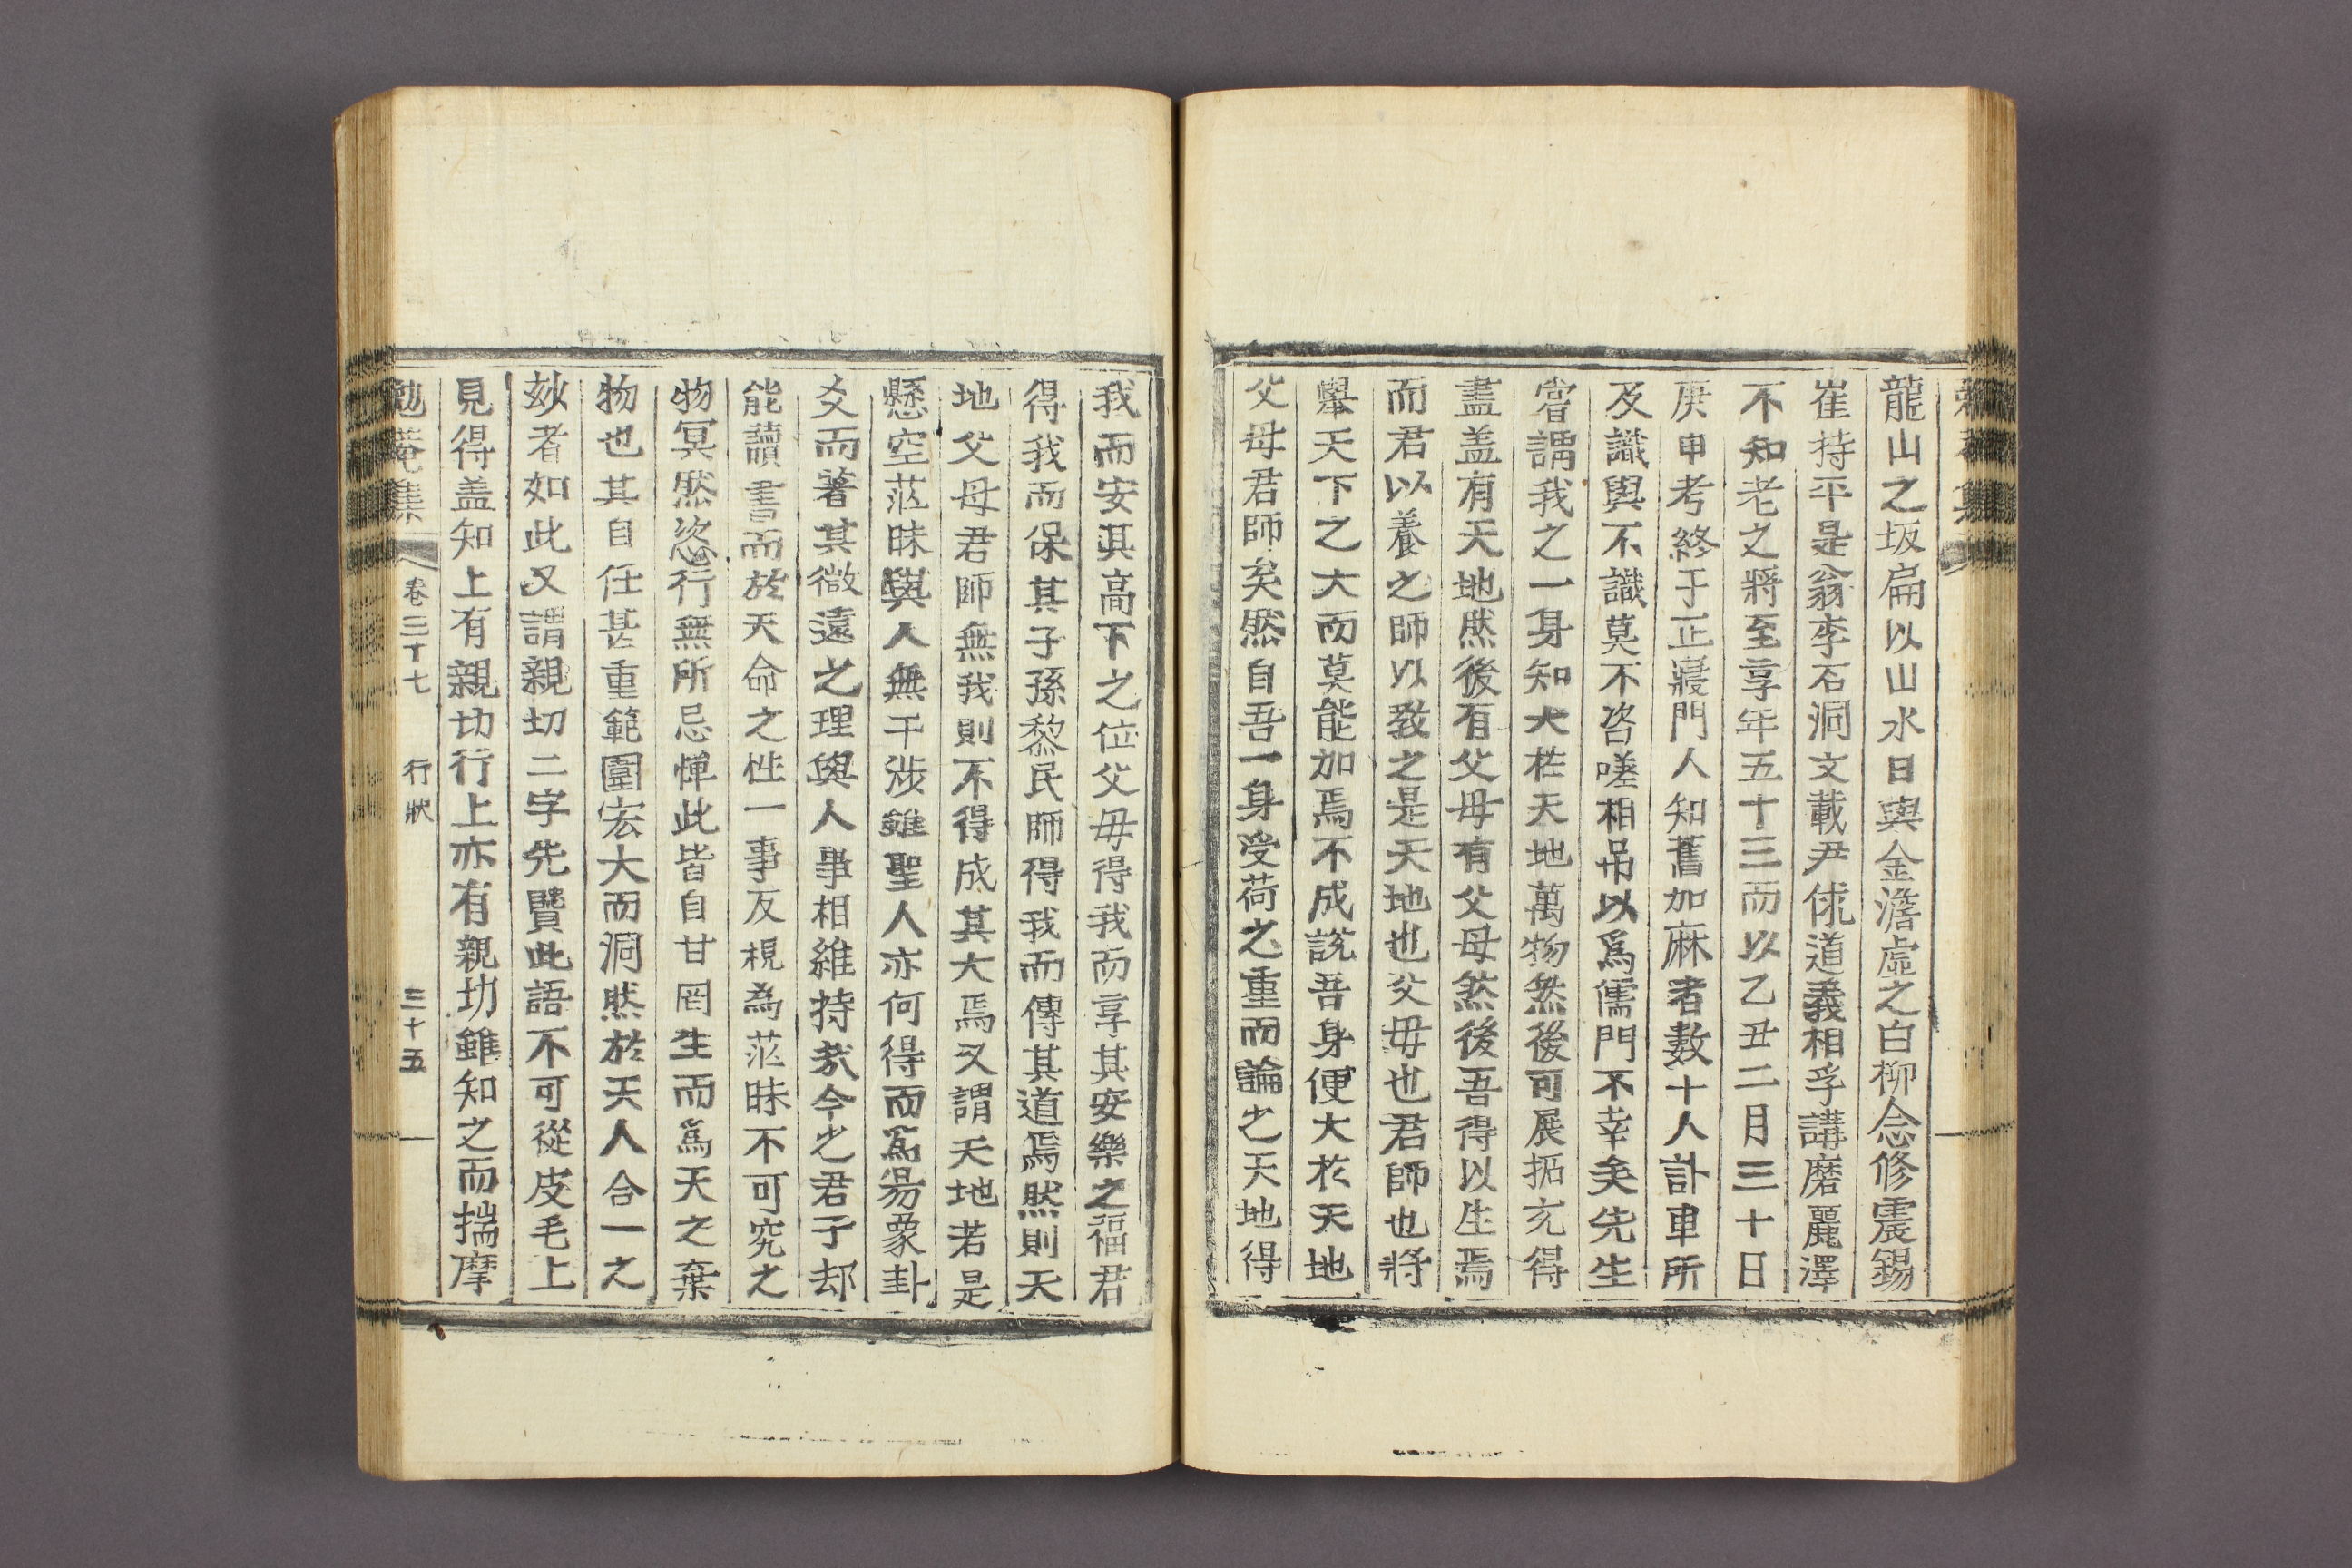 龍山之坂扁以山水日與金澹虛之白柳念修震錫
崔持平是翁李石洞文載尹俅道義相孚講磨麗澤
不知老之將至享年五十三而以乙丑二月三十日
庚申考終于正寢門人知舊加麻者數十人訃車所
及識與不識莫不咨嗟相吊以爲儒門不幸矣先生
嘗謂我之一身知大在天地萬物然後可展拓充得
盡盖有天地然後有父母有父母然後吾得以生焉
而君以養之師以敎之是天地也父母也君師也將
擧天下之大而莫能加焉不成說吾身便大於天地
父母君師矣然自吾一身受荷之重而論之天地得
我而安其高下之位父母得我而享其安樂之福君
得我而保其子孫黎民師得我而傳其道焉然則天
地父母君師無我則不得成其大焉又謂天地若是
懸空茫昧與人無干涉雖聖人亦何得而爲易象卦
爻而著其微遠之理與人事相維持哉今之君子却
能讀書而於天命之性一事反視為茫昧不可究之
物冥然恣行無所忌憚此皆自甘罔生而爲天之棄
物也其自任甚重範圍宏大而洞然於天人合一之
玅者如此又謂親切二字先賢此語不可從皮毛上
見得盖知上有親切行上亦有親切雖知之而揣摩
勉菴集 卷二十七 行狀 三十五